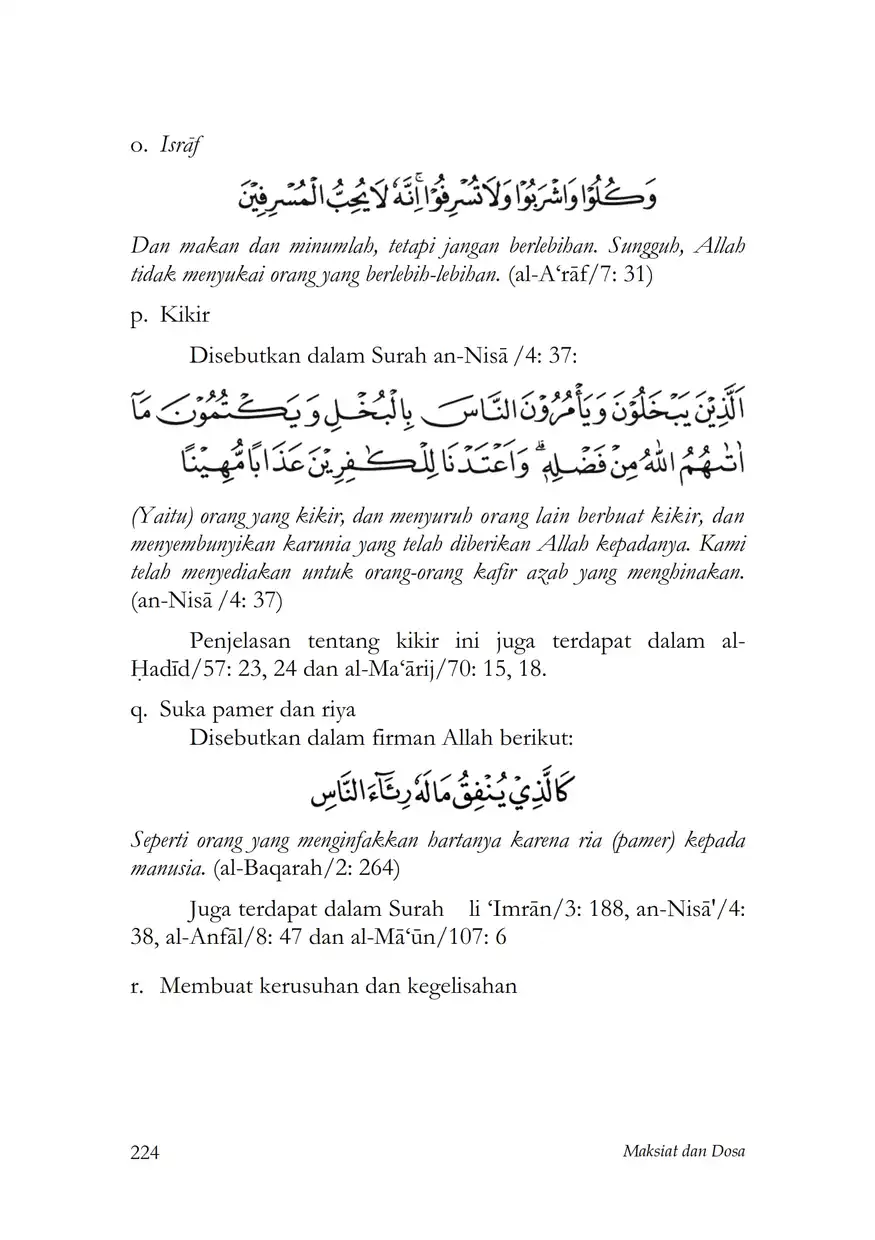 o. Isrāf
وَكُلُوْا وَاشْرَبُوْا وَلَا تُسْرِفُوْا ۚ اِنَّهٗ لَا يُحِبُّ الْمُسْرِفِيْنَ
Dan makan dan minumlah, tetapi jangan berlebihan. Sungguh, Allah
tidak menyukai orang yang berlebih-lebihan. (al-A‘rāf/7: 31)
p. Kikir
Disebutkan dalam Surah an-Nisā /4: 37:
اَلَّذِيْنَ يَبْخَلُوْنَ وَيَأْمُرُوْنَ النَّاسَ بِالْبُخْلِ وَيَكْتُمُوْنَ مَآ
اٰتٰىهُمُ اللّٰهُ مِنْ فَضْلِهٖۗ وَاَعْتَدْنَا لِلْكٰفِرِيْنَ عَذَابًا مُّهِيْنًا
(Yaitu) orang yang kikir, dan menyuruh orang lain berbuat kikir, dan
menyembunyikan karunia yang telah diberikan Allah kepadanya. Kami
telah menyediakan untuk orang-orang kafir azab yang menghinakan.
(an-Nisā /4: 37)
Penjelasan tentang kikir ini juga terdapat dalam al-
Ḥadīd/57: 23, 24 dan al-Ma‘ārij/70: 15, 18.
q. Suka pamer dan riya
Disebutkan dalam firman Allah berikut:
كَالَّذِيْ يُنْفِقُ مَالَهٗ رِئَآءَ النَّاسِ
Seperti orang yang menginfakkan hartanya karena ria (pamer) kepada
manusia. (al-Baqarah/2: 264)
Juga terdapat dalam Surah li ‘Imrān/3: 188, an-Nisā'/4:
38, al-Anfāl/8: 47 dan al-Mā‘ūn/107: 6
r. Membuat kerusuhan dan kegelisahan
224 Maksiat dan Dosa